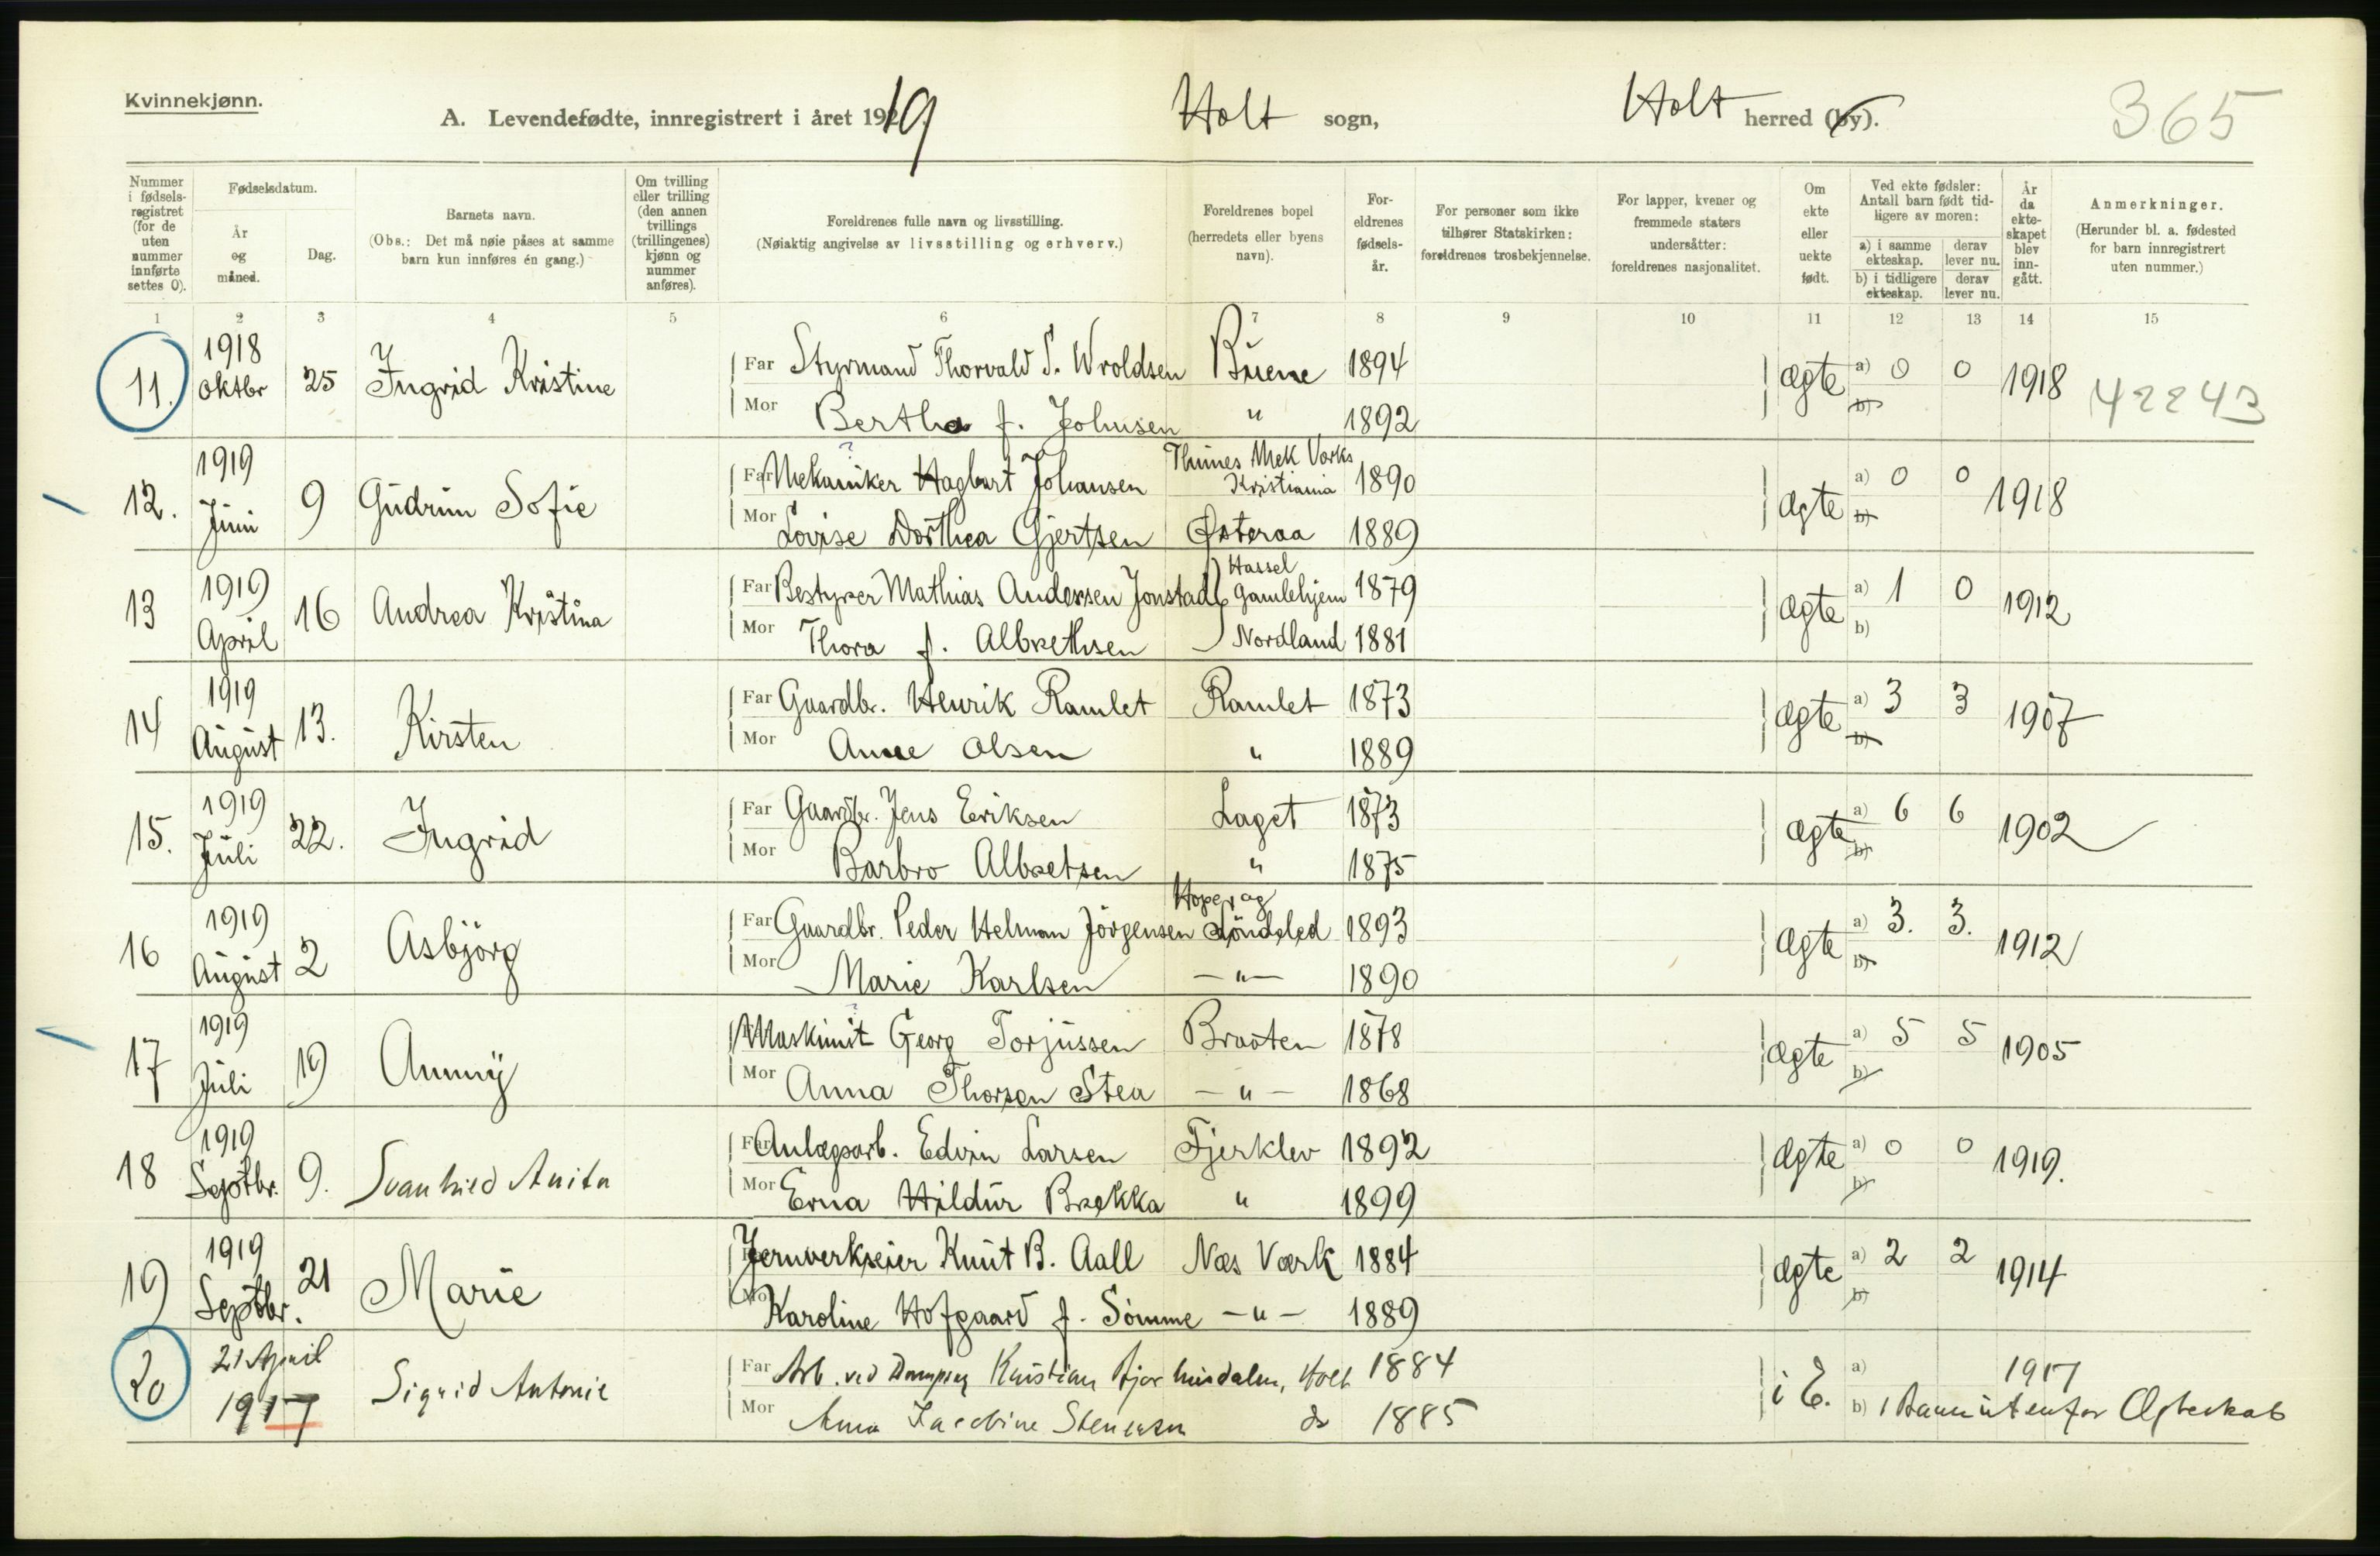 Kvinnekjønn.
A. Levendefødte, innregistrert i året 1919 Holt sogn, Holt herred (by). 365
Nummer i fødselsregistret (for de uten nummer innførte settes 0).
Fødselsdatum.
År og måned.
Dag.
Barnets navn.
(Obs.: Det må nøie påses at samme barn kun innføres én gang.)
Om tvilling eller trilling (den annen tvillings (trillingenes) kjønn og nummer anføres).
Foreldrenes fulle navn og livsstilling.
(Nøiaktig angivelse av livsstilling og erhverv.)
Foreldrenes bopel (herredets eller byens navn).
Foreldrenes fødselsår.
For personer som ikke tilhører Statskirken: foreldrenes trosbekjennelse.
For lapper, kvener og fremmede staters undersåtter: foreldrenes nasjonalitet.
Om ekte eller uekte født.
Ved ekte fødsler: Antall barn født tidligere av moren:
a) i samme ekteskap. derav lever nu.
b) i tidligere ekteskap. derav lever nu.
År da ekteskapet blev inngått.
Anmerkninger.
(Herunder bl. a. fødested for barn innregistrert uten nummer.)
1 2 3 4 5 6 7 8 9 10 11 12 13 14 15
11. 1918 Oktbr 25 Ingrid Kristine Far Styrmand Thorvald S. Wroldsen Buene 1894 Ægte a) 0 0 1918 42243
Mor Bertha f. Johnsen " 1892 b)
12. 1919 Juni 9 Gudrun Sofie Far Mekaniker Hagbart Johansen Thunes Mek Værks Kristiania 1890 Ægte a) 0 0 1918
Mor Lovise Dorthea Gjertsen Østeraa 1889 b)
13 1919 April 16 Andrea Kristina Far Bestyrer Mathias Andersen Jonstad Hassel Gamlehjem 1879 Ægte a) 1 0 1912
Mor Thora f. Albrethsen Nordland 1881 b)
14 1919 August 13. Kirsten Far Gaardbr. Henrik Ramlet Ramlet 1873 Ægte a) 3 3 1907
Mor Anne Olsen " 1889 b)
15. 1919 Juli 22. Ingrid Far Gaardbr. Jens Eriksen Laget 1873 Ægte a) 6 6 1902
Mor Barbro Albretsen " 1875 b)
16 1919 August 2 Asbjörg Far Gaardbr. Peder Helman Jörgensen Hope, og Söndeled 1893 Ægte a) 3. 3. 1912
Mor Marie Karlsen — " — 1890 b)
17 1919 Juli 19 Annny Maskinist Georg Torjussen Braaten 1878 Ægte a) 5 5 1905
Mor Anna Thorsen Stea — " — 1868 b)
18 1919 Septbr. 9. Svanhild Anita Far Anlægsarb. Edvin Larsen Fjerklev 1892 Ægte a) 0 0 1919.
Mor Erna Hildur Brekka " 1899 b)
19 1919 Septbr. 21 Marie Jernverkseier Knut B. Aall Næs Værk 1884 Ægte a) 2 2 1914
Mor Karoline Hofgaard f. Sömme — " — 1889 b)
20 21 April 1917 Sigrid Antonie Far Arb. ved Kristian Holt 1884 i E. a) 1917
Mor Anna Jacobine Stensen do 1885 b) 1 Barn utenfor Ægteskab